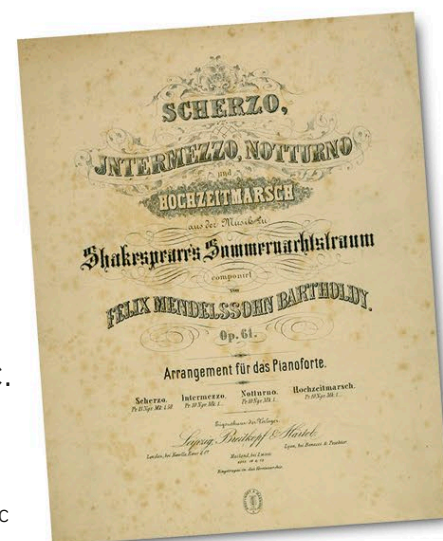 SCHERZO,
INTERMEZZO, NOTTURNO
und
HOCHZEITMARSCH
aus der Musik zu
Shakespeare's Sommernachtstraum
componirt
von
FELIX MENDELSSOHN BARTHOLDY.
Op. 61.
Arrangement für das Pianoforte.
Scherzo. Intermezzo. Notturno. Hochzeitmarsch.
Eigenthum der Verleger.
Leipzig, Breitkopf & Härtel.
c